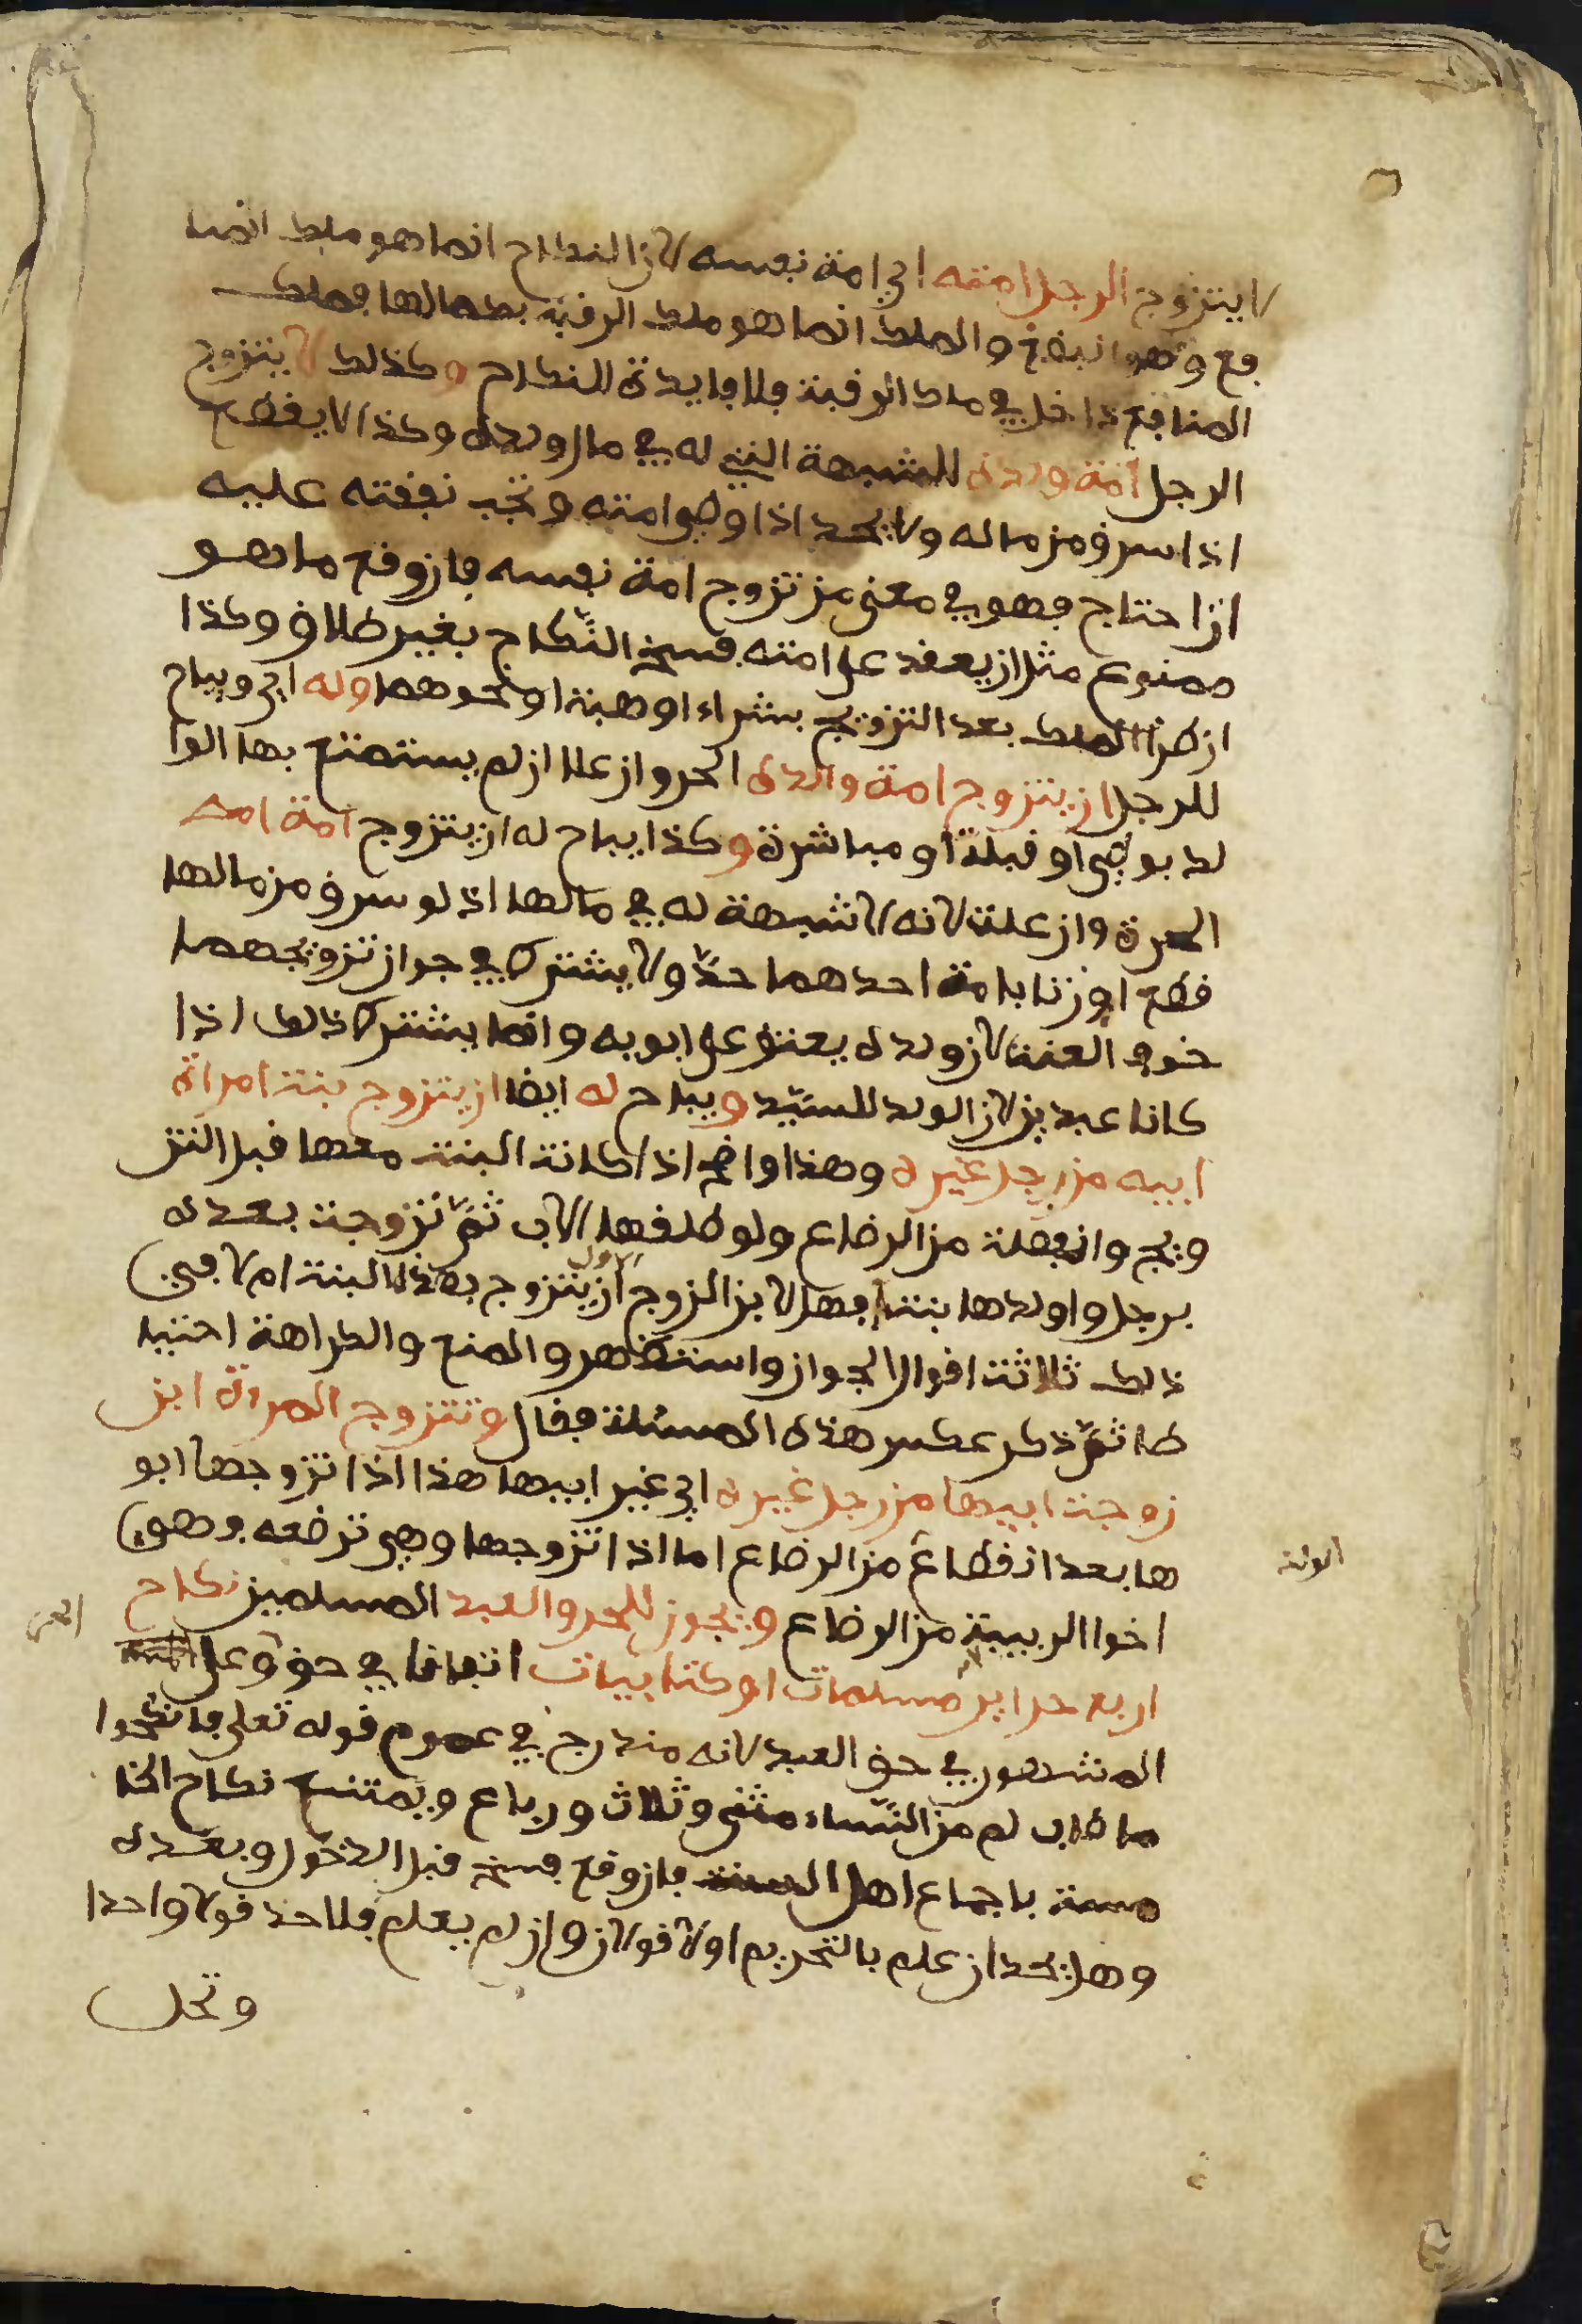 لا يتزوج الرجل امته اي امة نفسه لان النكاح انما هو ملك المنا
فع وهو انبضع والملك انما هو ملك الرقبة بكمالها فملك
المنافع داخل في ملك الرقبة فلا فايدة للنكاح وكذلك لا يتزوج
الرجل امة ولده للشبهة التي له في مال ولده وكذا لا يقطع
اذا سرق من ماله ولا يحد اذا وطي امته وتجب نفقته عليه
ان احتاج فهو في معنى من تزوج امة نفسه فان وقع ما هو
ممنوع مثل ان يعقد على امته فسخ النكاح بغير طلاق وكذا
ان طرأ الملك بعد التزويج بشراء او هبة او نحوهما وله اي ويباح
للرجل ان يتزوج امة والده الحر وان علا ان لم يستمتع بها الوا
لد بوطي او قبلة او مباشرة وكذا يباح له ان يتزوج امة امه
الحرة وان علت لانه لا شبهة له في مالها اذ لو سرق من مالها
قطع او زنا بامة احدهما حدّ ولا يشترط في جواز تزويجهما
خوف العنت لان ولده يعتق على ابويه وانما يشترط ذلك اذا
كانا عبدين لان الولد للسيّد ويباح له ايضا ان يتزوج بنت امراة
ابيه من رجل غيره وهذا واضح اذا كانت البنت معها قبل التز
ويج وانفصلت من الرضاع ولو طلقها الاب ثمّ تزوجت بعده
برجل واولدها بنتا فهل لابن الزوج الاول ان يتزوج بهذه البنت ام لا في
ذلك ثلاثة اقوال الجواز واستظهر والمنع والكراهة احتيا
طا ثمّ ذكر عكس هذه المسئلة فقال وتتزوج المراة ابن
زوجت ابيها من رجل غيره اي غير ابيها هذا اذا تزوجها ابو
ها بعد انقطاع من الرضاع اما اذا تزوجها وهي ترضعه فهو
اخوا الربيبة من الرضاع ويجوز للحر والعبد المسلمين نكاح
اربع حراير مسلمات او كتابيات اتفاقا في حق وعلى
المشهور في حق العبد لانه مندرج في عموم قوله تعلى فانكحوا
ما طاب لكم من النّساء مثنى وثلاث ورباع ويمتنع نكاح الخا
مسة باجماع اهل السنة فان وقع فسخ قبل الدخول وبعده
وهل يحد ان علم بالتحريم او لا قولان وان لم يعلم فلا حد قولا واحدا
وتحل
الحر